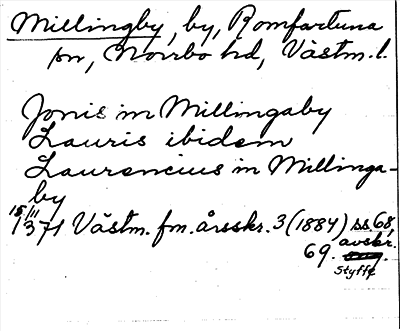 Millingby, by, Romfartuna
sn, Norrbo hd, Västm. l.
Jonis in Millingaby
Lauris ibidem
Laurencius in Millinga-
by
15/11 1371 Västm. fm. årsskr. 3 (1884) ss. 68,
69. avskr.
Styffe